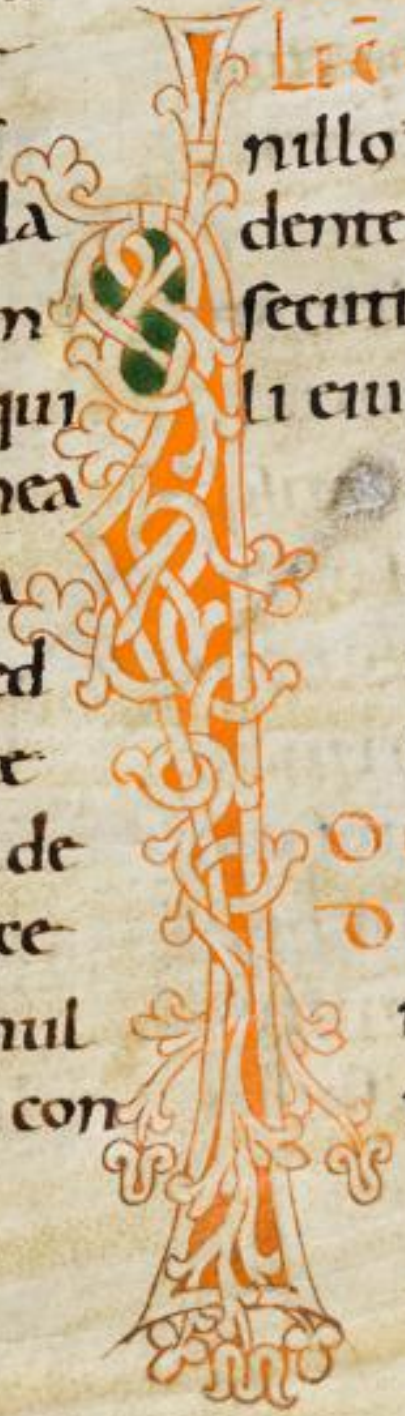 la
n
qui
nea
a
ed
e
de
ce
nul
con
LEC̄
nillo
dente
secuti
li eiu
O
D